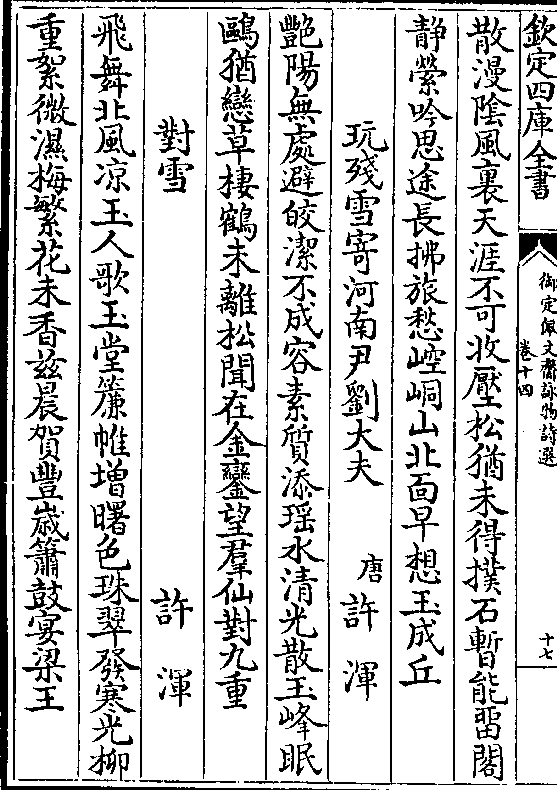 欽定四庫全書
御定佩文齋詠物詩選
卷十四
十七
散漫隂風裏天涯不可收壓松猶未得撲石暫能留閣
靜縈吟思途長拂旅愁崆峒山北面早想玉成丘
玩殘雪寄河南尹劉大夫 唐 許渾
艷陽無處避皎潔不成容素質添瑶水清光散玉峰眠
鷗猶戀草棲鶴未離松聞在金鑾望羣仙對九重
對雪 許渾
飛舞北風凉玉人歌玉堂簾帷增曙色珠翠發寒光柳
重絮微濕梅繁花未香兹晨賀豐嵗簫鼓宴梁王